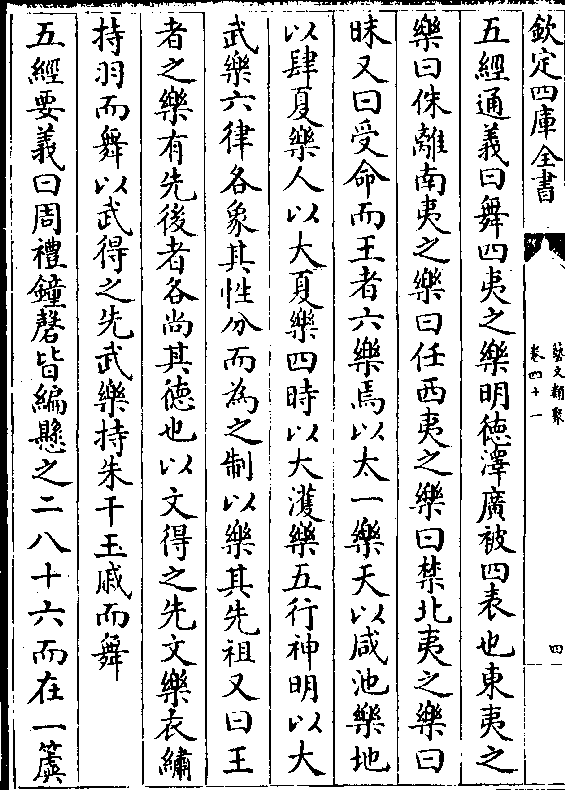 欽定四庫全書
藝文類聚
卷四十一
四
五經通義曰舞四夷之樂明徳澤廣被四表也東夷之
樂曰侏離南夷之樂曰任西夷之樂曰禁北夷之樂曰
昧又曰受命而王者六樂焉以太一樂天以咸池樂地
以肆夏樂人以大夏樂四時以大濩樂五行神明以大
武樂六律各象其性分而為之制以樂其先祖又曰王
者之樂有先後者各尚其徳也以文得之先文樂衣繡
持羽而舞以武得之先武樂持朱干玉戚而舞
五經要義曰周禮鐘磬皆編懸之二八十六而在一簴